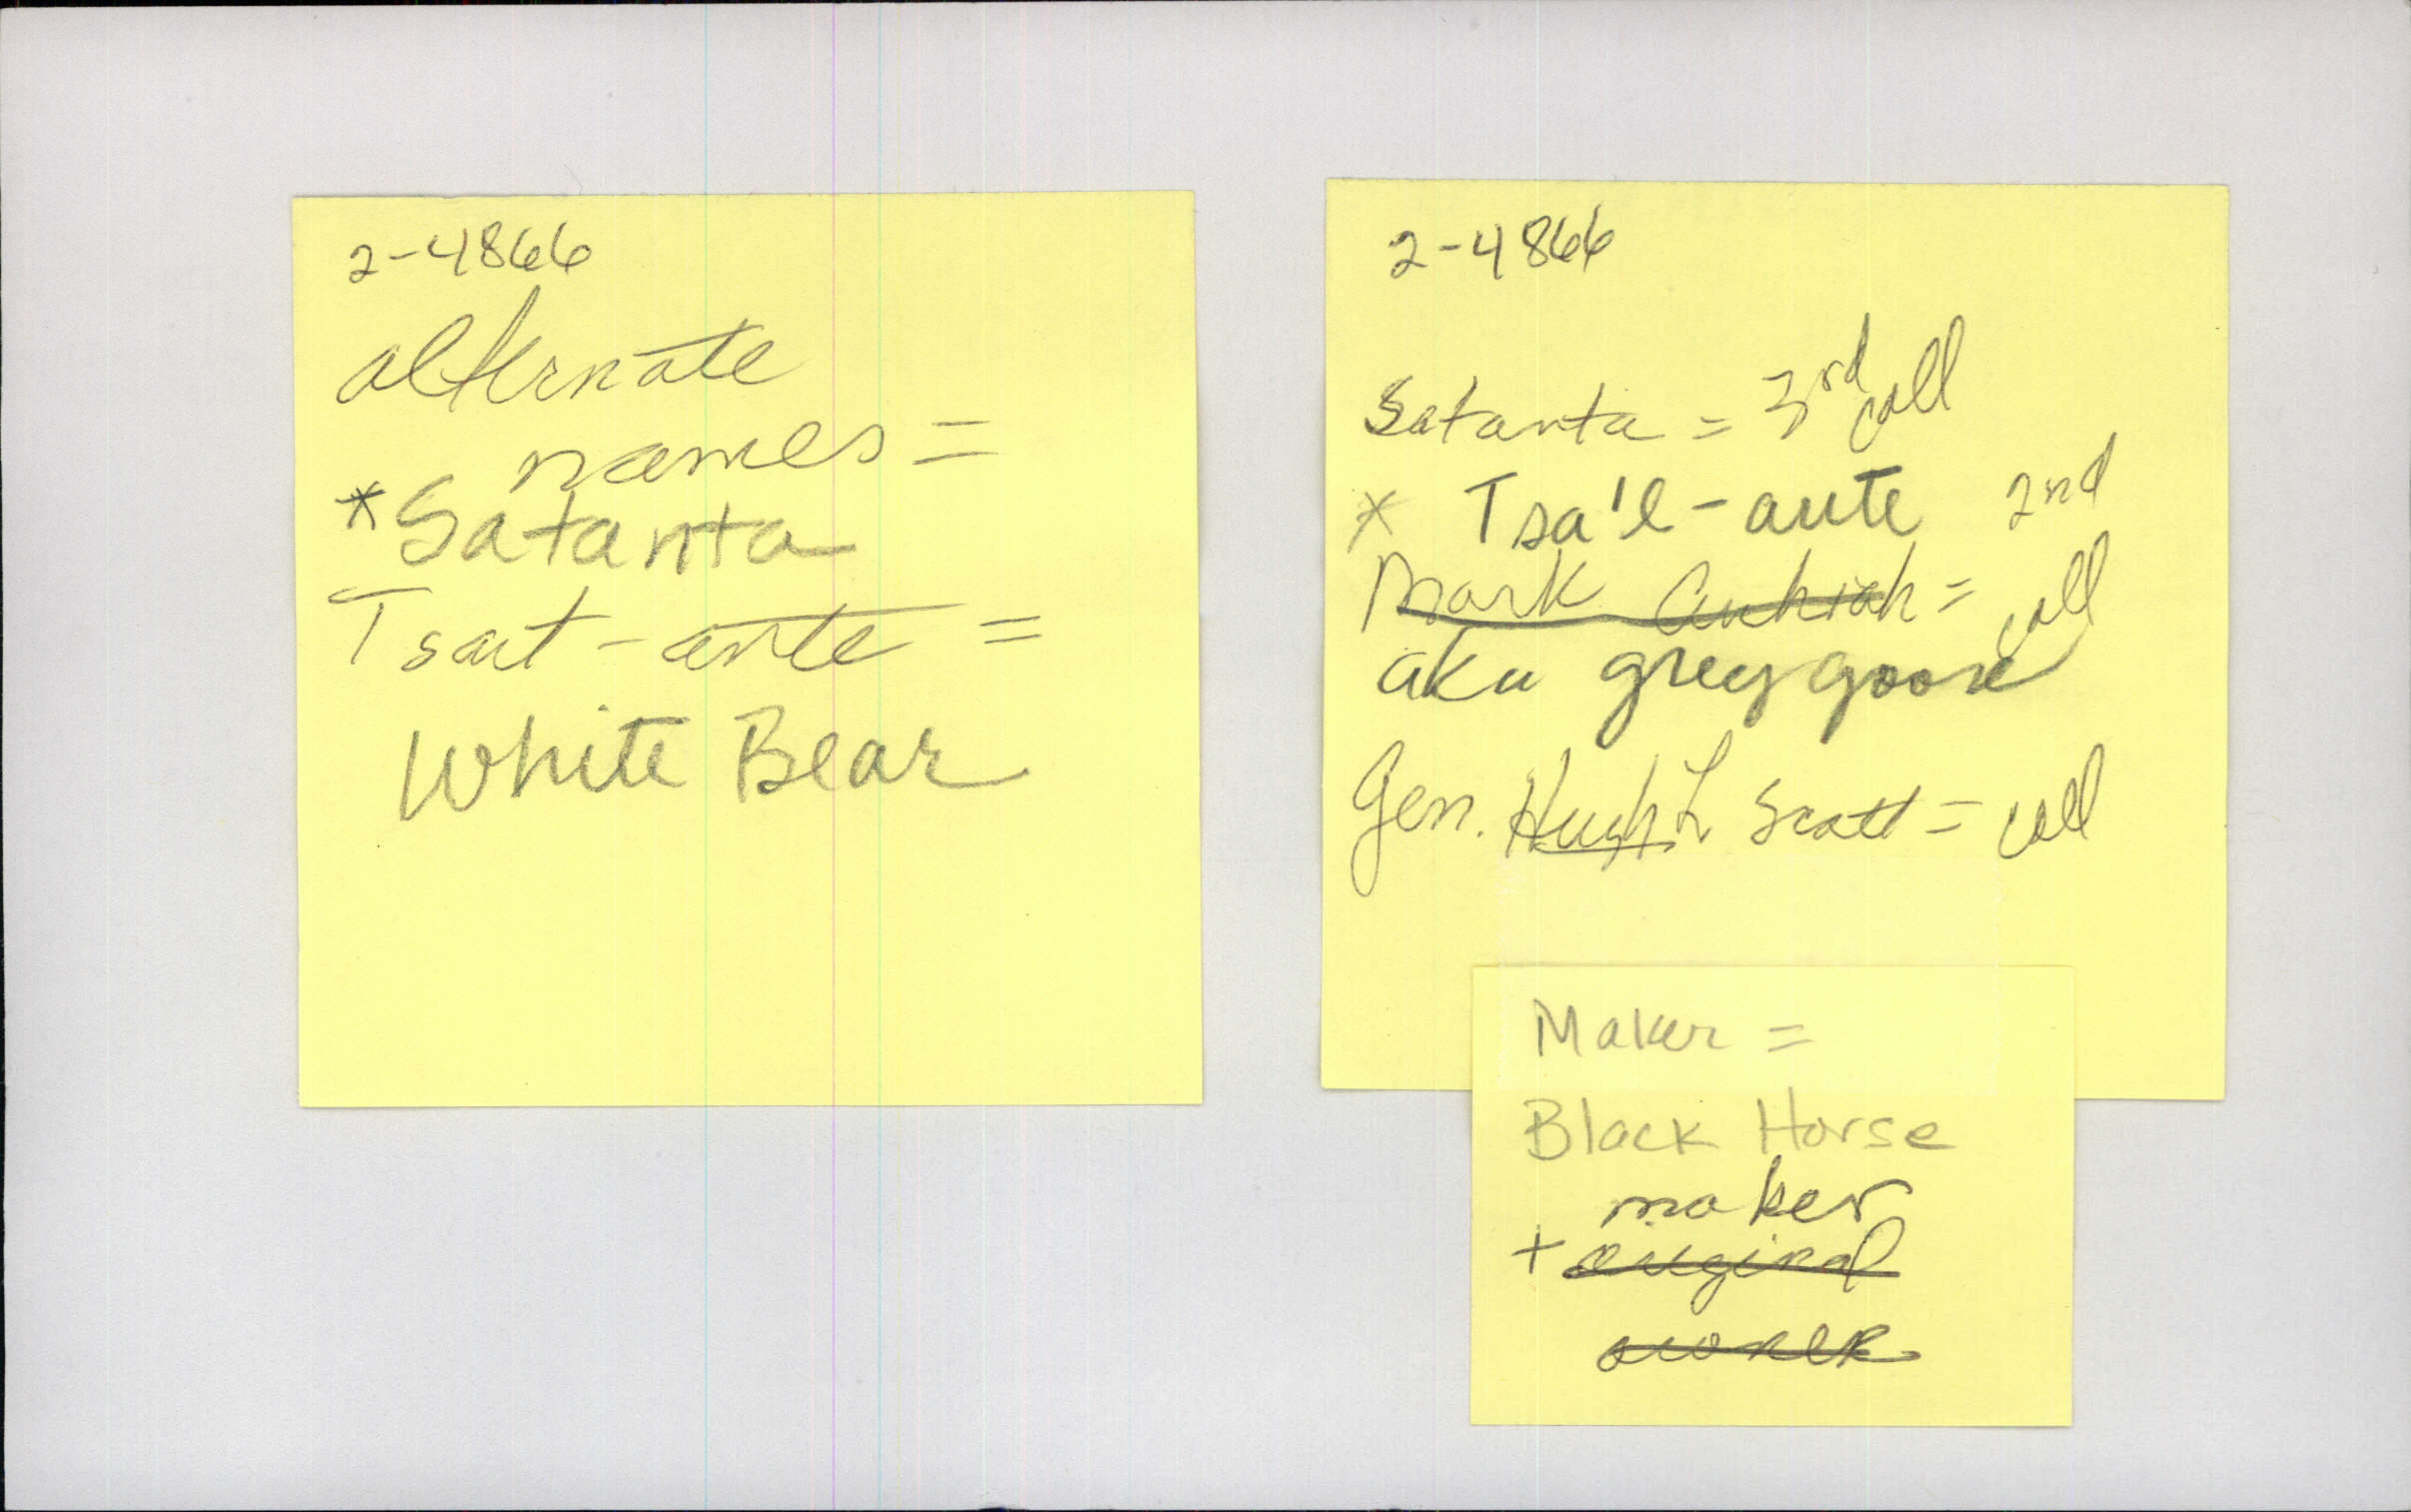 2-4866
alternate
names =
*Satanta
Tsait-ante =
White Bear
2-4866
Satanta = 3rd coll
* Tsa'l-aute 2nd
Mark Auhiah = coll
aka grey goose
Gen. Hugh L Scott = coll
Maker =
Black Horse
maker
+ original
owner